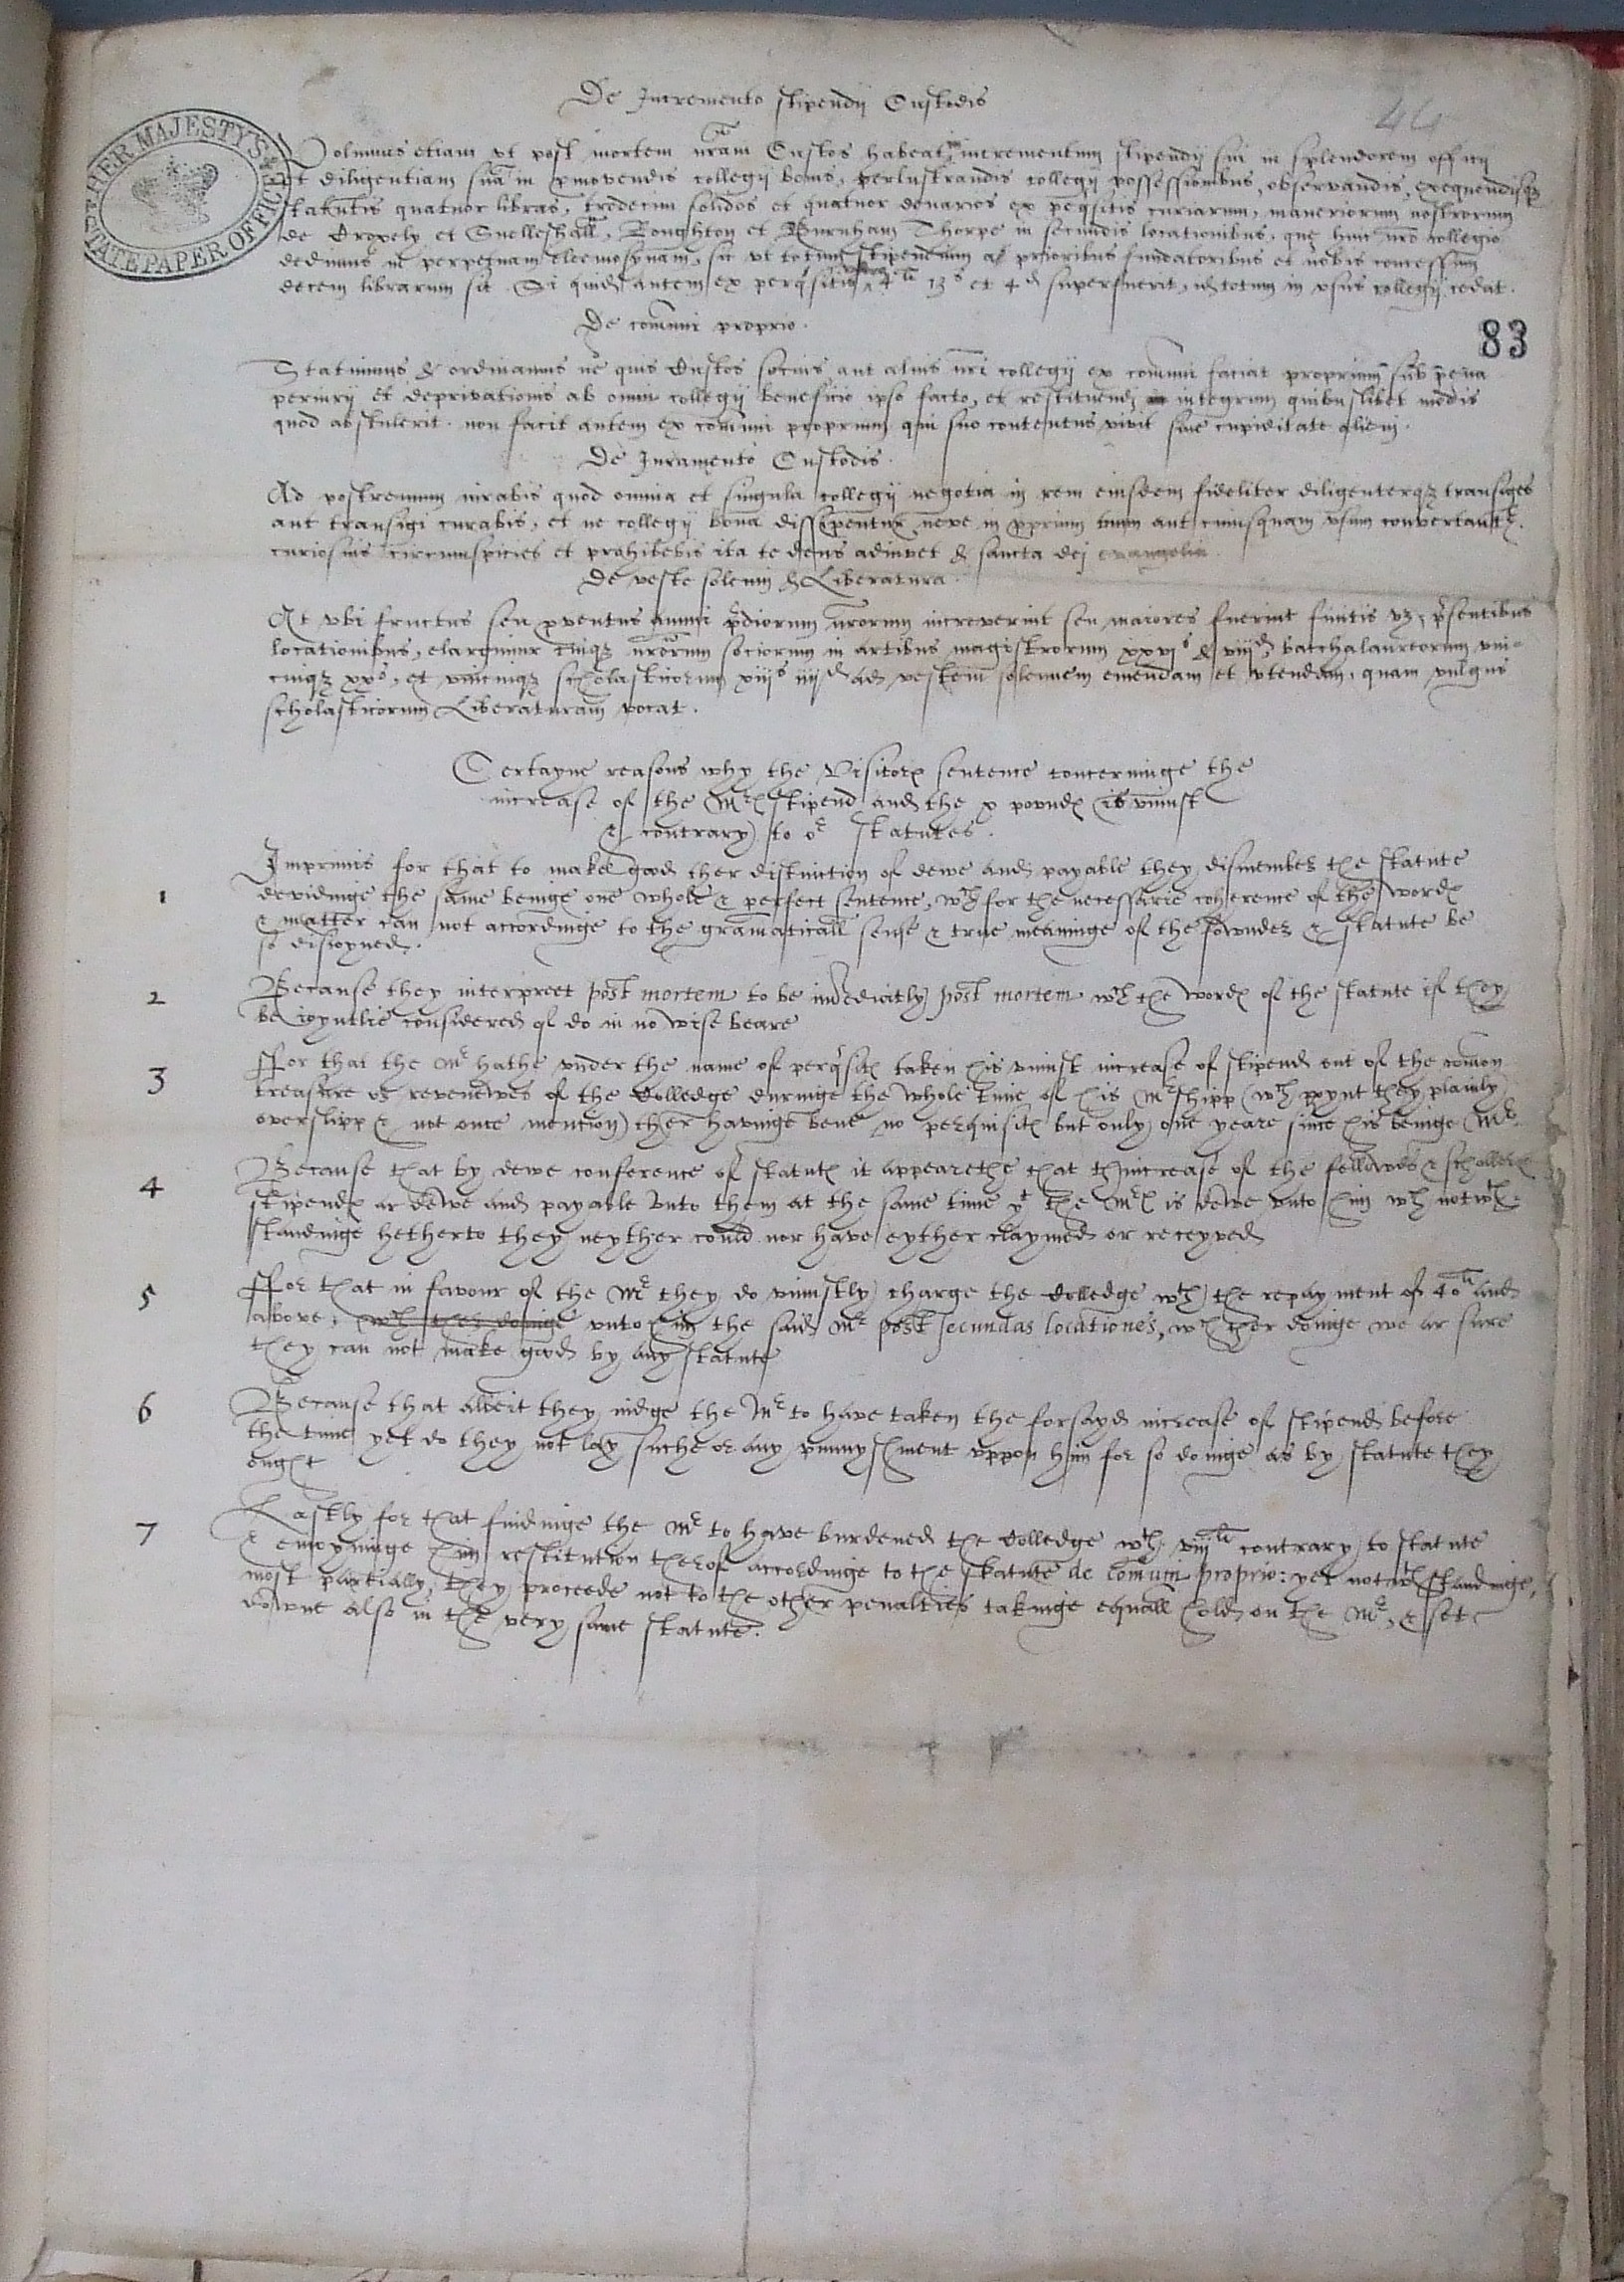 De Incremento stipendij Custodis
44
HER MAJESTY'S
STATE PAPER OFFICE
Volumus etiam vt post mortem nr̄am Custos habeat in incrementum stipendij sui in splendorem officij
et diligentiam suā in p̱movendis collegij bonis, perlustrandis collegij possessionibus, observandis, exequendisqȝ
statutis quatuor libras, tredecim solidos et quatuor denarios ex perq̱sitis curiarum, maneriorum nostrorum
de Croxely et Snelleshall, Roughton et Burnham Thorpe in secundis locationibus, que huic nr̄o collegio
dedimus in perpetuam eleemosynam, sic vt totum stipendium a prioribus fundatoribus et nobis concessum
decem librarum sit. Si quid autem ex perq̱sitis 4li 13s et 4d superfuerit, id totum in vsus collegij cedat.
De com̄uni proprio.
83
Statuimus & ordinamus ne quis Custos socius aut alius nr̄i collegij ex com̄uni faciat proprium sub pena
periurij et deprivationis ab omni collegij beneficio ipso facto, et restituend in integrum quibuslibet modis
quod abstulerit. non facit autem ex com̄uni proprium qui suo contentus vivit sine cupiditate alieni.
De Iuramento Custodis.
Ad postremum iurabis quod omnia et singula collegij negotia in rem eiusdem fideliter diligenterqȝ transiges
aut transigi curabis, et ne collegij bona dissipentur neve in p̱prium tuum aut cuiusquam vsum convertantr.
curiosius circumspicies et prohibebis ita te deus adiuvet & sancta dei evangelia.
De veste solemni & Liberatura.
At vbi fructus seu p̱ventus annui p̄diorum nr̄orum increverint seu maiores fuerint finitis vȝ, p̄sentibus
locationibus, elargimur cuiqȝ nr̄orum sociorum in artibus magistrorum xxvjs & viijd, bacchalaureorum vni-
cuiqȝ xxs, et vnicuiqȝ scholasticorum xiijs iiijd ad vestem solemnem emendam et vtendam, quam vulgus
scholasticorum Liberaturam vocat.
Certayne reasons why the Visitors sentence concerninge the
increase of the Mrs stipend and the x poundes is vniust
& contrary to or statutes.
1 Imprimis for that to make good ther distinction of dewe and payable they dismember the statute
devidinge the same beinge one whole & perfect sentence, wch for the necessarie coherence of the wordes
& matter can not accordinge to the gram̄aticall sense & true meaninge of the fownder & statute be
so disioyned.
2 Because they interpreet post mortem to be im̄ediatly post mortem wch the wordes of the statute if they
be ioyntlie considered of do in no wise beare
3 ffor that the Mr hathe vnder the name of perq̱sites taken his vniust increase of stipend out of the com̄on
treasure or revenewes of the Colledge duringe the whole time of his Mrshipp (wch poynt they plainly
overslipp & not once mention) ther havinge bene no perquisites but only one yeare since his beinge Mr.
4 Because that by dewe conference of statutes it appearethe that thincrease of the fellowes & schollers
stipendes ar dewe and payable vnto them at the same time yt the Mrs is dewe vnto him wch notwth-
standinge hetherto they neyther could nor have eyther claymed or receyved
5 ffor that in favour of the Mr they do vniustly charge the Colledge wth the repayment of 40li and
above, wch ther doinge vnto him the said Mr post secundas locationes, wch ther doinge we ar sure
they can not make good by any statute
6 Because that albeit they iudge the Mr to have taken the forsayd increase of stipend before
the time yet do they not lay suche or any punnyshment vppon him for so doinge as by statute they
ought
7 Lastly for that findinge the Mr to have burdened the Colledge wth viijli contrary to statute
& enioyninge him restitution therof accordinge to the statute de com̄uni proprio: yet notwthstandinge,
most partially, they proceede not to the other penalties takinge equall hold on the Mr, & set
downe also in the very same statute.